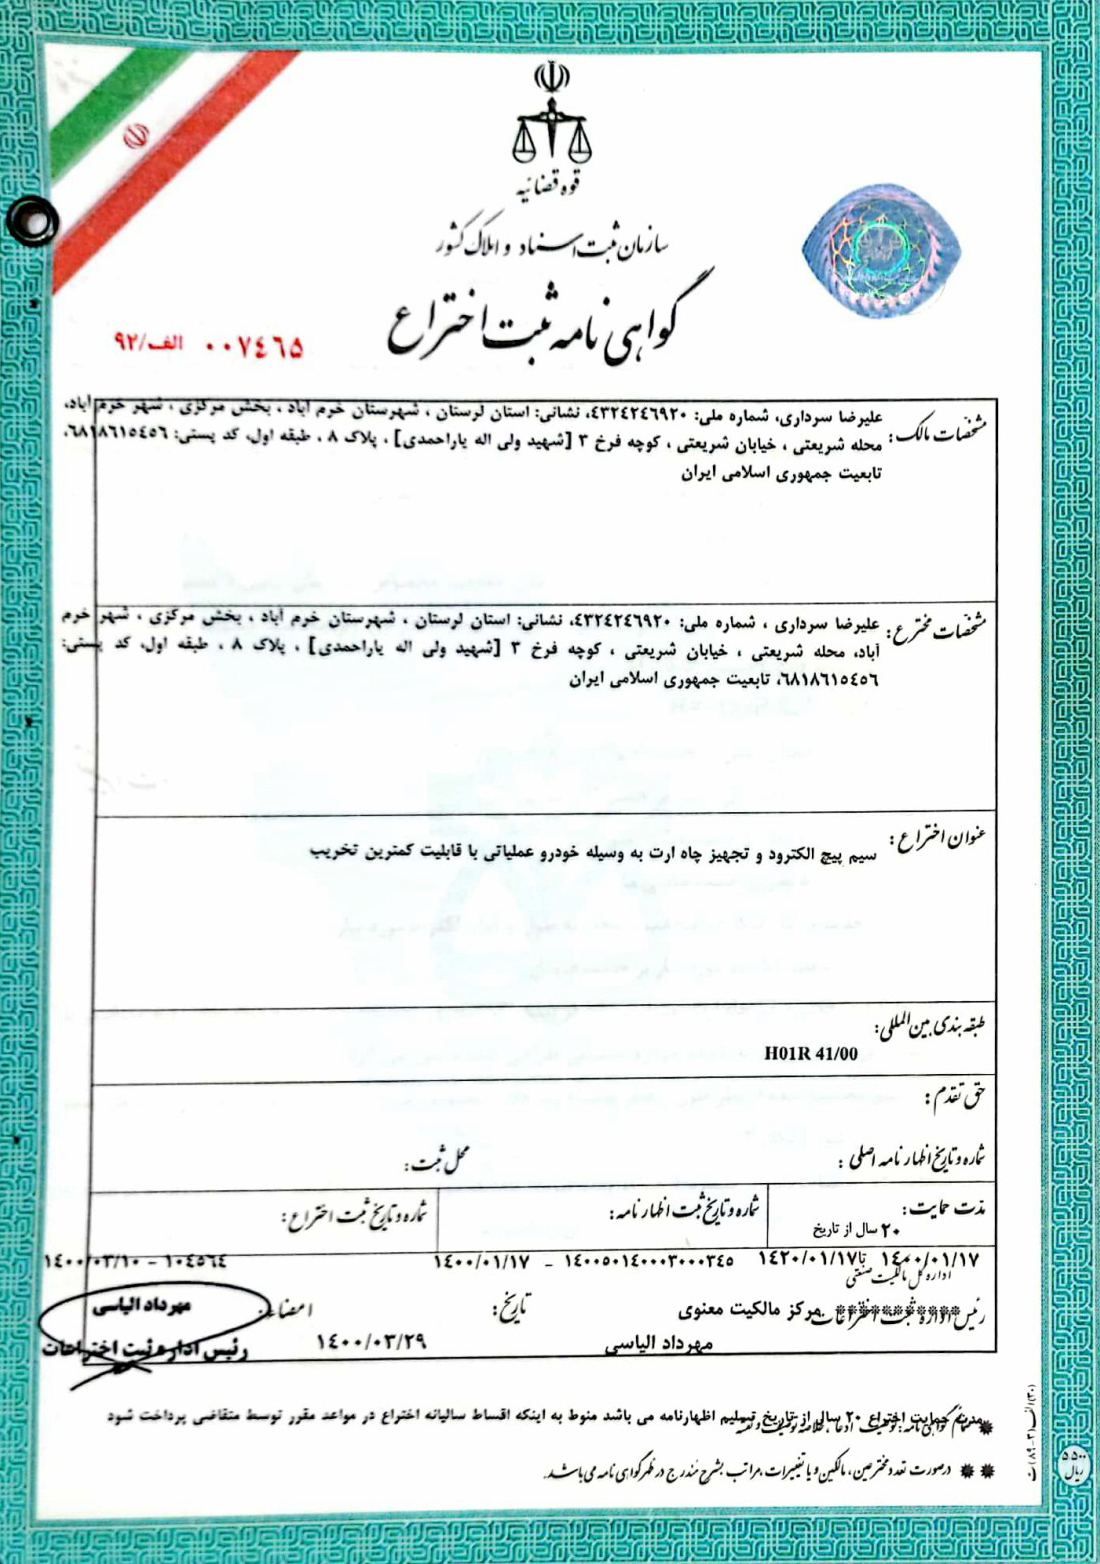 قوه قضائیه
سازمان ثبت اسناد و املاک کشور
گواهی نامه ثبت اختراع
۰۰۷٤٦٥ الف/۹۲
مشخصات مالک: علیرضا سرداری، شماره ملی: ٤۳۲٤۲٤٦۹۲۰، نشانی: استان لرستان ، شهرستان خرم آباد ، بخش مرکزی ، شهر خرم آباد،
محله شریعتی ، خیابان شریعتی ، کوچه فرخ ۳ [شهید ولی اله یاراحمدی] ، پلاک ۸ ، طبقه اول، کد پستی: ٦۸۱۸٦۱٥٤٥٦،
تابعیت جمهوری اسلامی ایران
مشخصات مخترع: علیرضا سرداری ، شماره ملی: ٤۳۲٤۲٤٦۹۲۰، نشانی: استان لرستان ، شهرستان خرم آباد ، بخش مرکزی ، شهر خرم
آباد، محله شریعتی ، خیابان شریعتی ، کوچه فرخ ۳ [شهید ولی اله یاراحمدی] ، پلاک ۸ ، طبقه اول، کد پستی:
٦۸۱۸٦۱٥٤٥٦، تابعیت جمهوری اسلامی ایران
عنوان اختراع: سیم پیچ الکترود و تجهیز چاه ارت به وسیله خودرو عملیاتی با قابلیت کمترین تخریب
طبقه بندی بین المللی:
H01R 41/00
حق تقدم:
شماره و تاریخ اظهار نامه اصلی: محل ثبت:
مدت حمایت: شماره و تاریخ ثبت اظهار نامه: شماره و تاریخ ثبت اختراع:
۲۰ سال از تاریخ
۱٤۰۰/۰۱/۱۷ تا ۱٤۲۰/۰۱/۱۷ ۱٤۰۰٥۰۱٤۰۰۰۳۰۰۰۳٤٥ - ۱٤۰۰/۰۱/۱۷ ۱۰٤٥٦٤ - ۱٤۰۰/۰۳/۱۰
اداره کل مالکیت صنعتی
رئیس اداره ثبت اختراعات مرکز مالکیت معنوی تاریخ: امضاء: مهرداد الیاسی
مهرداد الیاسی ۱٤۰۰/۰۳/۲۹ رئیس اداره ثبت اختراعات
مدت حمایت اختراع ۲۰ سال از تاریخ تسلیم اظهارنامه می باشد منوط به اینکه اقساط سالیانه اختراع در مواعد مقرر توسط متقاضی پرداخت شود
** درصورت تعدد مخترعین، مالکین و یا تغییرات، مراتب بشرح مندرج در ظهر گواهی نامه می باشد.
۵۵۰۰
ریال